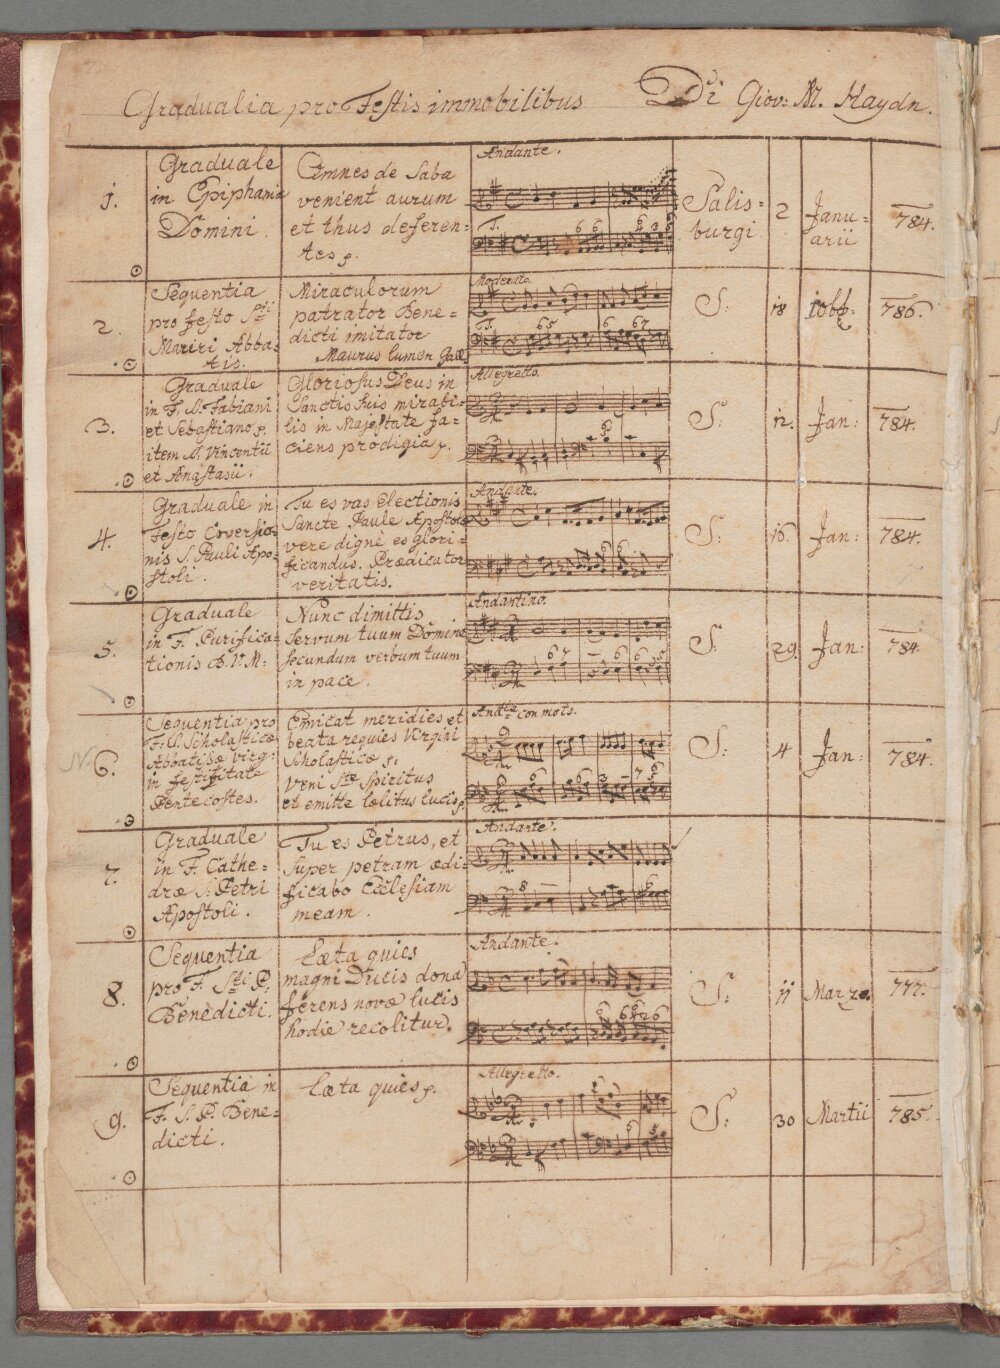 Gradualia pro Festis immobilibus Di Giov: M. Haydn.
1.
Graduale
in Epiphania
Domini.
Omnes de Saba
venient aurum
et thus deferen=
tes
Andante.
T.
6 6
Salis=
burgi
2
Janu=
arii
784.
2.
Sequentia
pro festo Sti
Abba=
tis.
Miraculorum
patrator Bene=
dicti imitator
Maurus lumen
Moderato.
T.
6 5
6
6 7
S:
18
786.
3.
Graduale
in F. S. Fabiani
et Sebastiano
item S. Vincentii
et Anastasii.
Gloriosus Deus in
Sanctis suis mirabi=
lis in Majestate fa=
ciens prodigia
Allegretto.
6
S:
12.
Jan:
784.
4.
Graduale in
Festo Conversio=
nis S. Pauli Apo=
stoli.
Tu es vas Electionis
Sancte Paule Apostole
vere digne es glori=
ficandus. Prædicator
veritatis.
Andante.
S:
16.
Jan:
784.
5.
Graduale
in F. Purifica=
tionis B.V.M:
Nunc dimittis
servum tuum Domine
secundum verbum tuum
in pace.
Andantino.
6 7
S:
29.
Jan:
784.
6.
Sequentia pro
F. S. Scholasticæ
Abbatissæ virg:
in festivitate
Pentecostes.
Emicat meridies et
beata requies Virgini
Scholasticæ
Veni Ste Spiritus
et emitte cælitus lucis
Andte con moto.
S:
4
Jan:
784.
7.
Graduale
in F. Cathe=
dræ S. Petri
Apostoli.
Tu es Petrus, et
super petram ædi=
ficabo Ecclesiam
meam.
Andante.
8
8.
Sequentia
pro F. Sti P.
Benedicti.
Læta quies
magni Ducis dona
ferens novæ lucis
hodie recolitur.
Andante.
S:
11
Marzo.
777.
9.
Sequentia in
F. S. P. Bene=
dicti.
Læta quies
Allegretto.
S:
30
Martii
785.